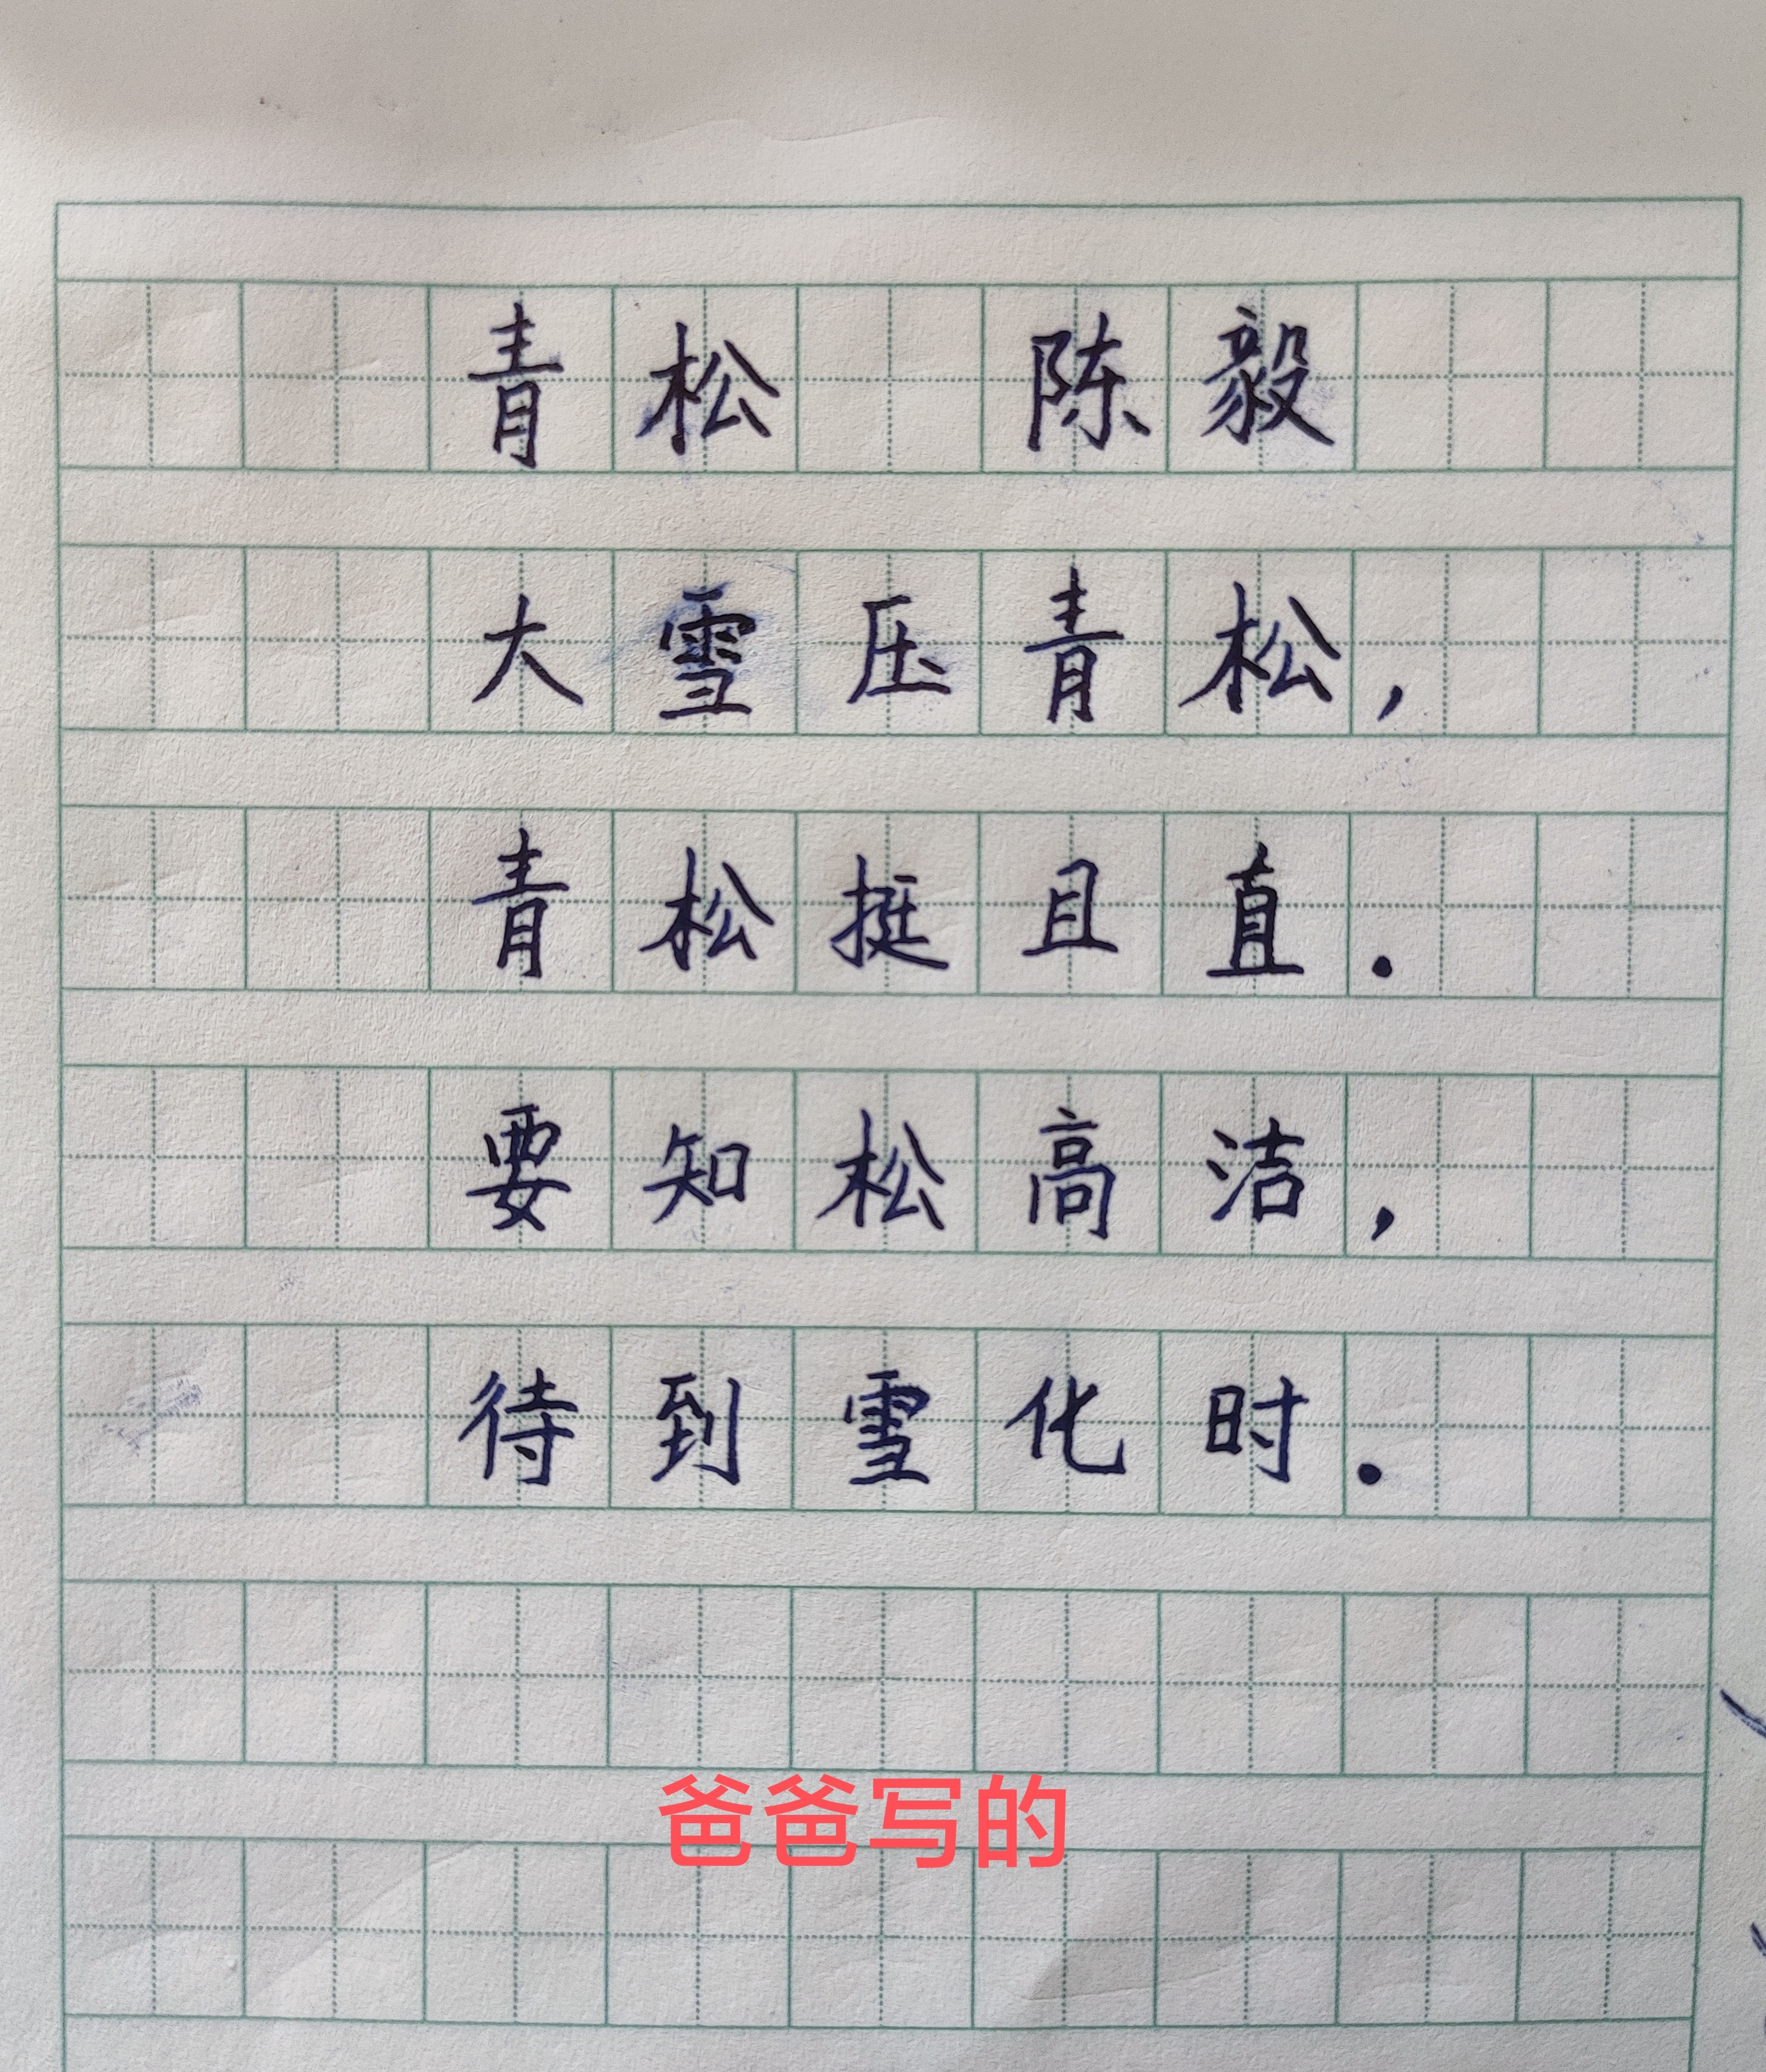 青松 陈毅
大雪压青松，
青松挺且直.
要知松高洁，
待到雪化时.
爸爸写的